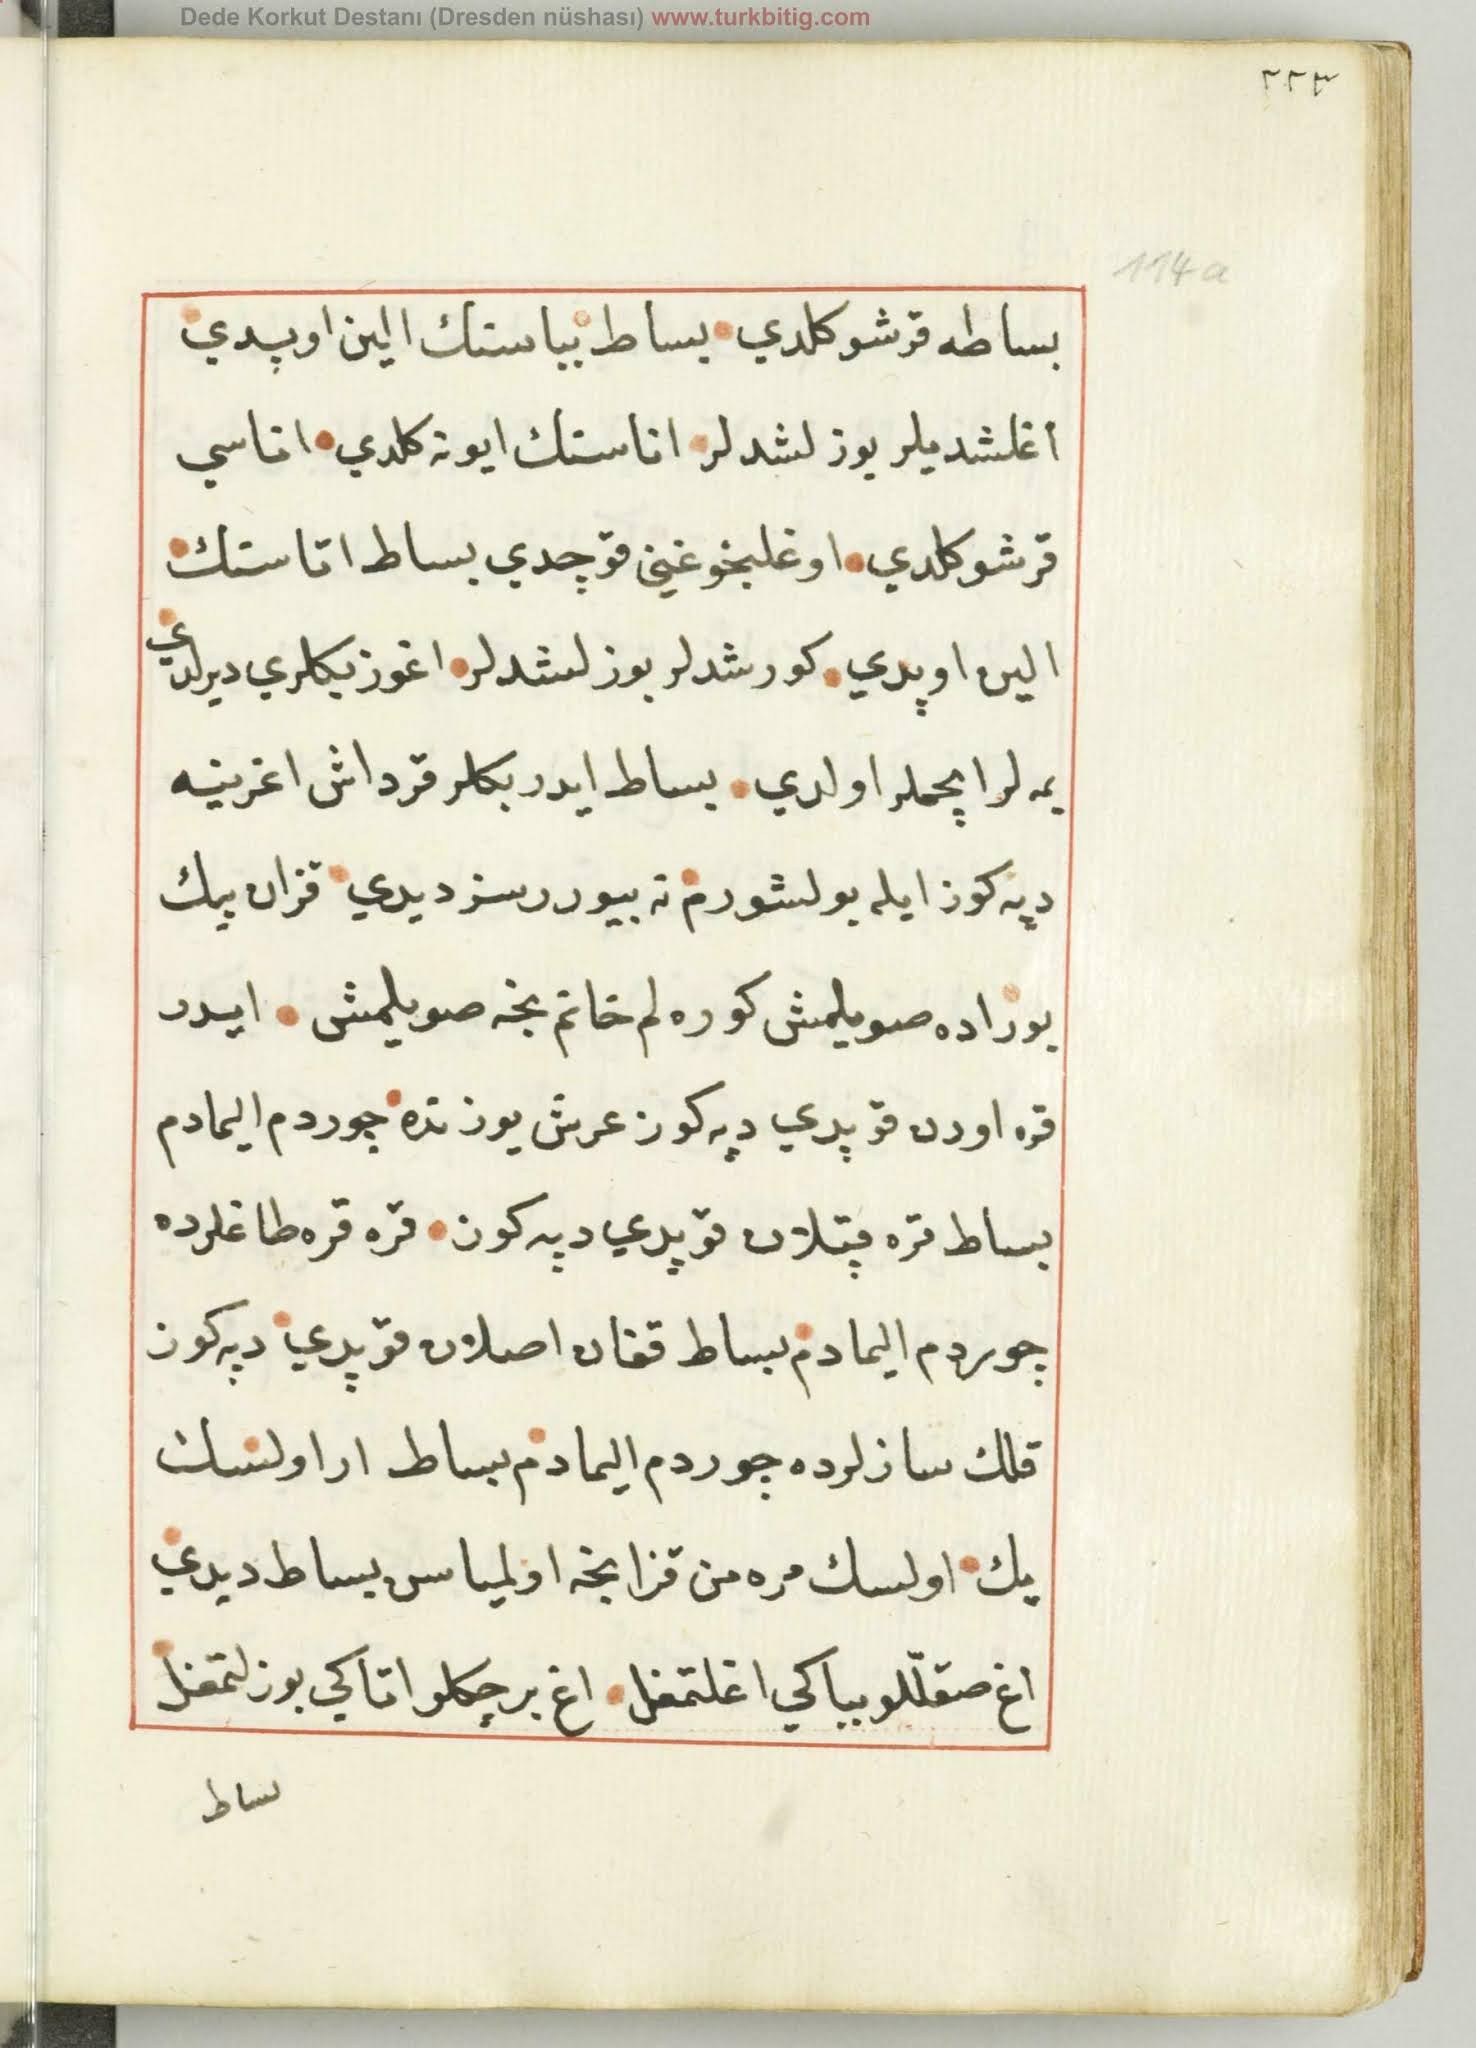 Dede Korkut Destanı (Dresden nüshası) www.turkbitig.com
٢٢٣
114a
بساطه قرشو كلدي بساط بباسنك الين اوپدي
اغلشديلر بوزلشدلر اناسنك ايونه كلدي اناسي
قرشو كلدي اوغلنجوغنى قوچدي بساط اناسنك
الين اوپدي كورشدلر بوزلشدلر اغوز بكلري ديرلدي
يمه لر ايچملر اولدي بساط ايدر بكلر قرداش اغرينه
دپه كوز ايله بولشورم نه بيوررسز ديدي قزان بيك
بوراده صويلمش كوره لم خانم نجه صويلمش ايدر
قره اورن قوپدي دپه كوز عرش يوزنده چوردم اليمادم
بساط قره قپلان قوپدي دپه كوز قره قره طاغلرده
چوردم اليمادم بساط قغان اصلان قوپدي دپه كوز
قلك سازلرده چوردم اليمادم بساط ار اولسك
بيك اولسك مره من قزانجه اولمياسن بساط ديدي
اغ صقللو بباكي اغلتمغل اغ برچكلو اناكي بوزلتمغل
بساط